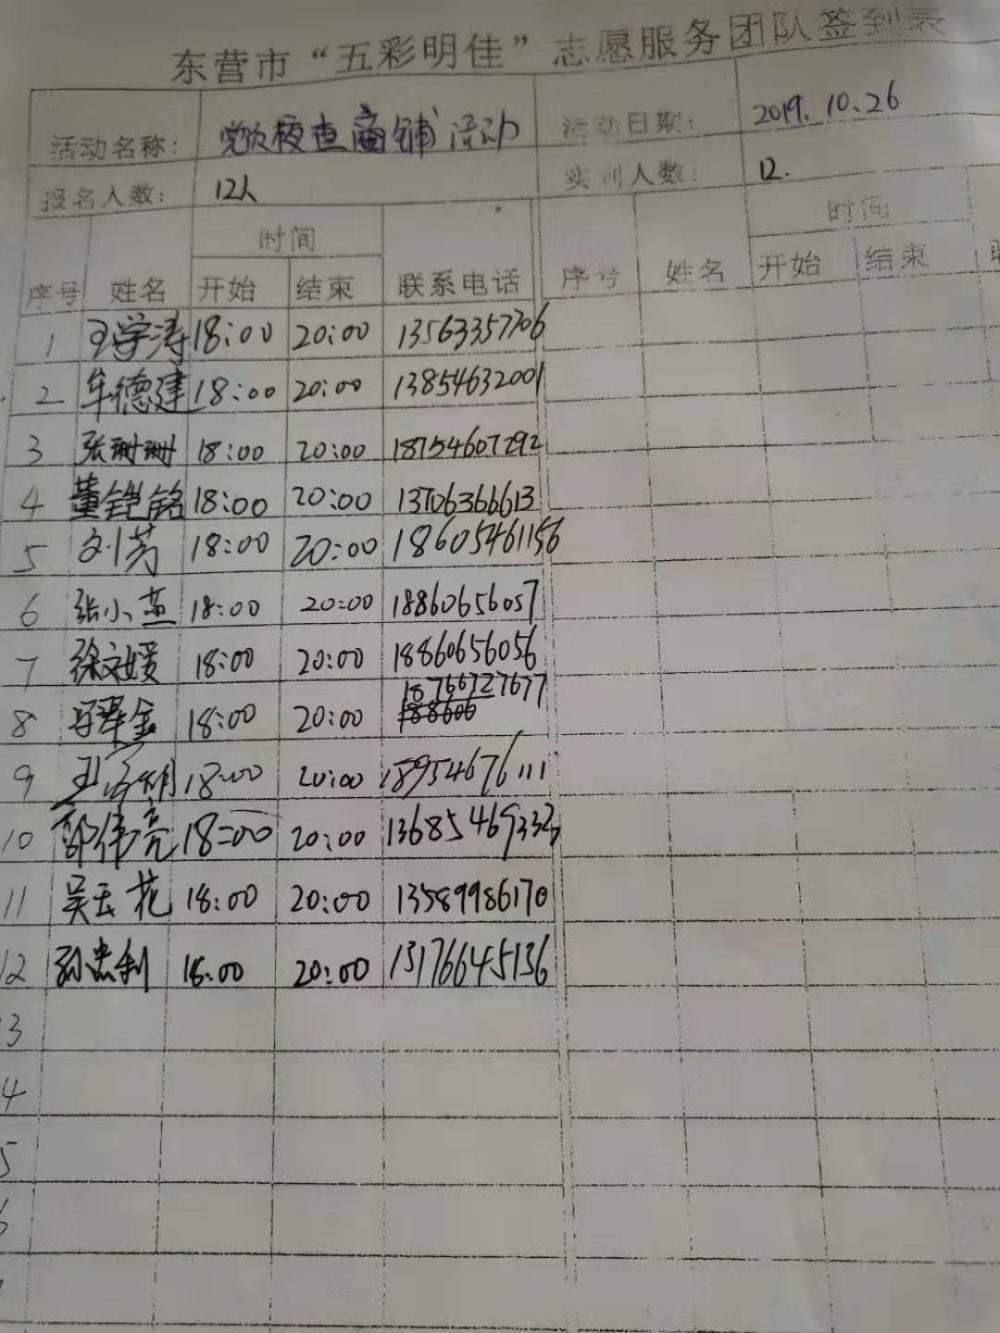 东营市“五彩明佳”志愿服务团队签到表
活动名称: 党员夜查商铺活动 活动日期: 2019.10.26
报名人数: 12人 实到人数: 12.
时间 时间
序号 姓名 开始 结束 联系电话 序号 姓名 开始 结束
1 王学涛 18:00 20:00 13563357706
2 牟德建 18:00 20:00 13854632001
3 张珊珊 18:00 20:00 18754607292
4 董铠铭 18:00 20:00 13706366613
5 刘芳 18:00 20:00 18605461156
6 张小燕 18:00 20:00 18860656057
7 徐文媛 18:00 20:00 18860656056
18766727677
8 18:00 20:00 188606
9 18:00 20:00 18954676111
10 郭伟亮 18:00 20:00 13685469332
11 吴玉花 18:00 20:00 13589986170
12 孙忠利 18:00 20:00 13176645136
3
4
5
6